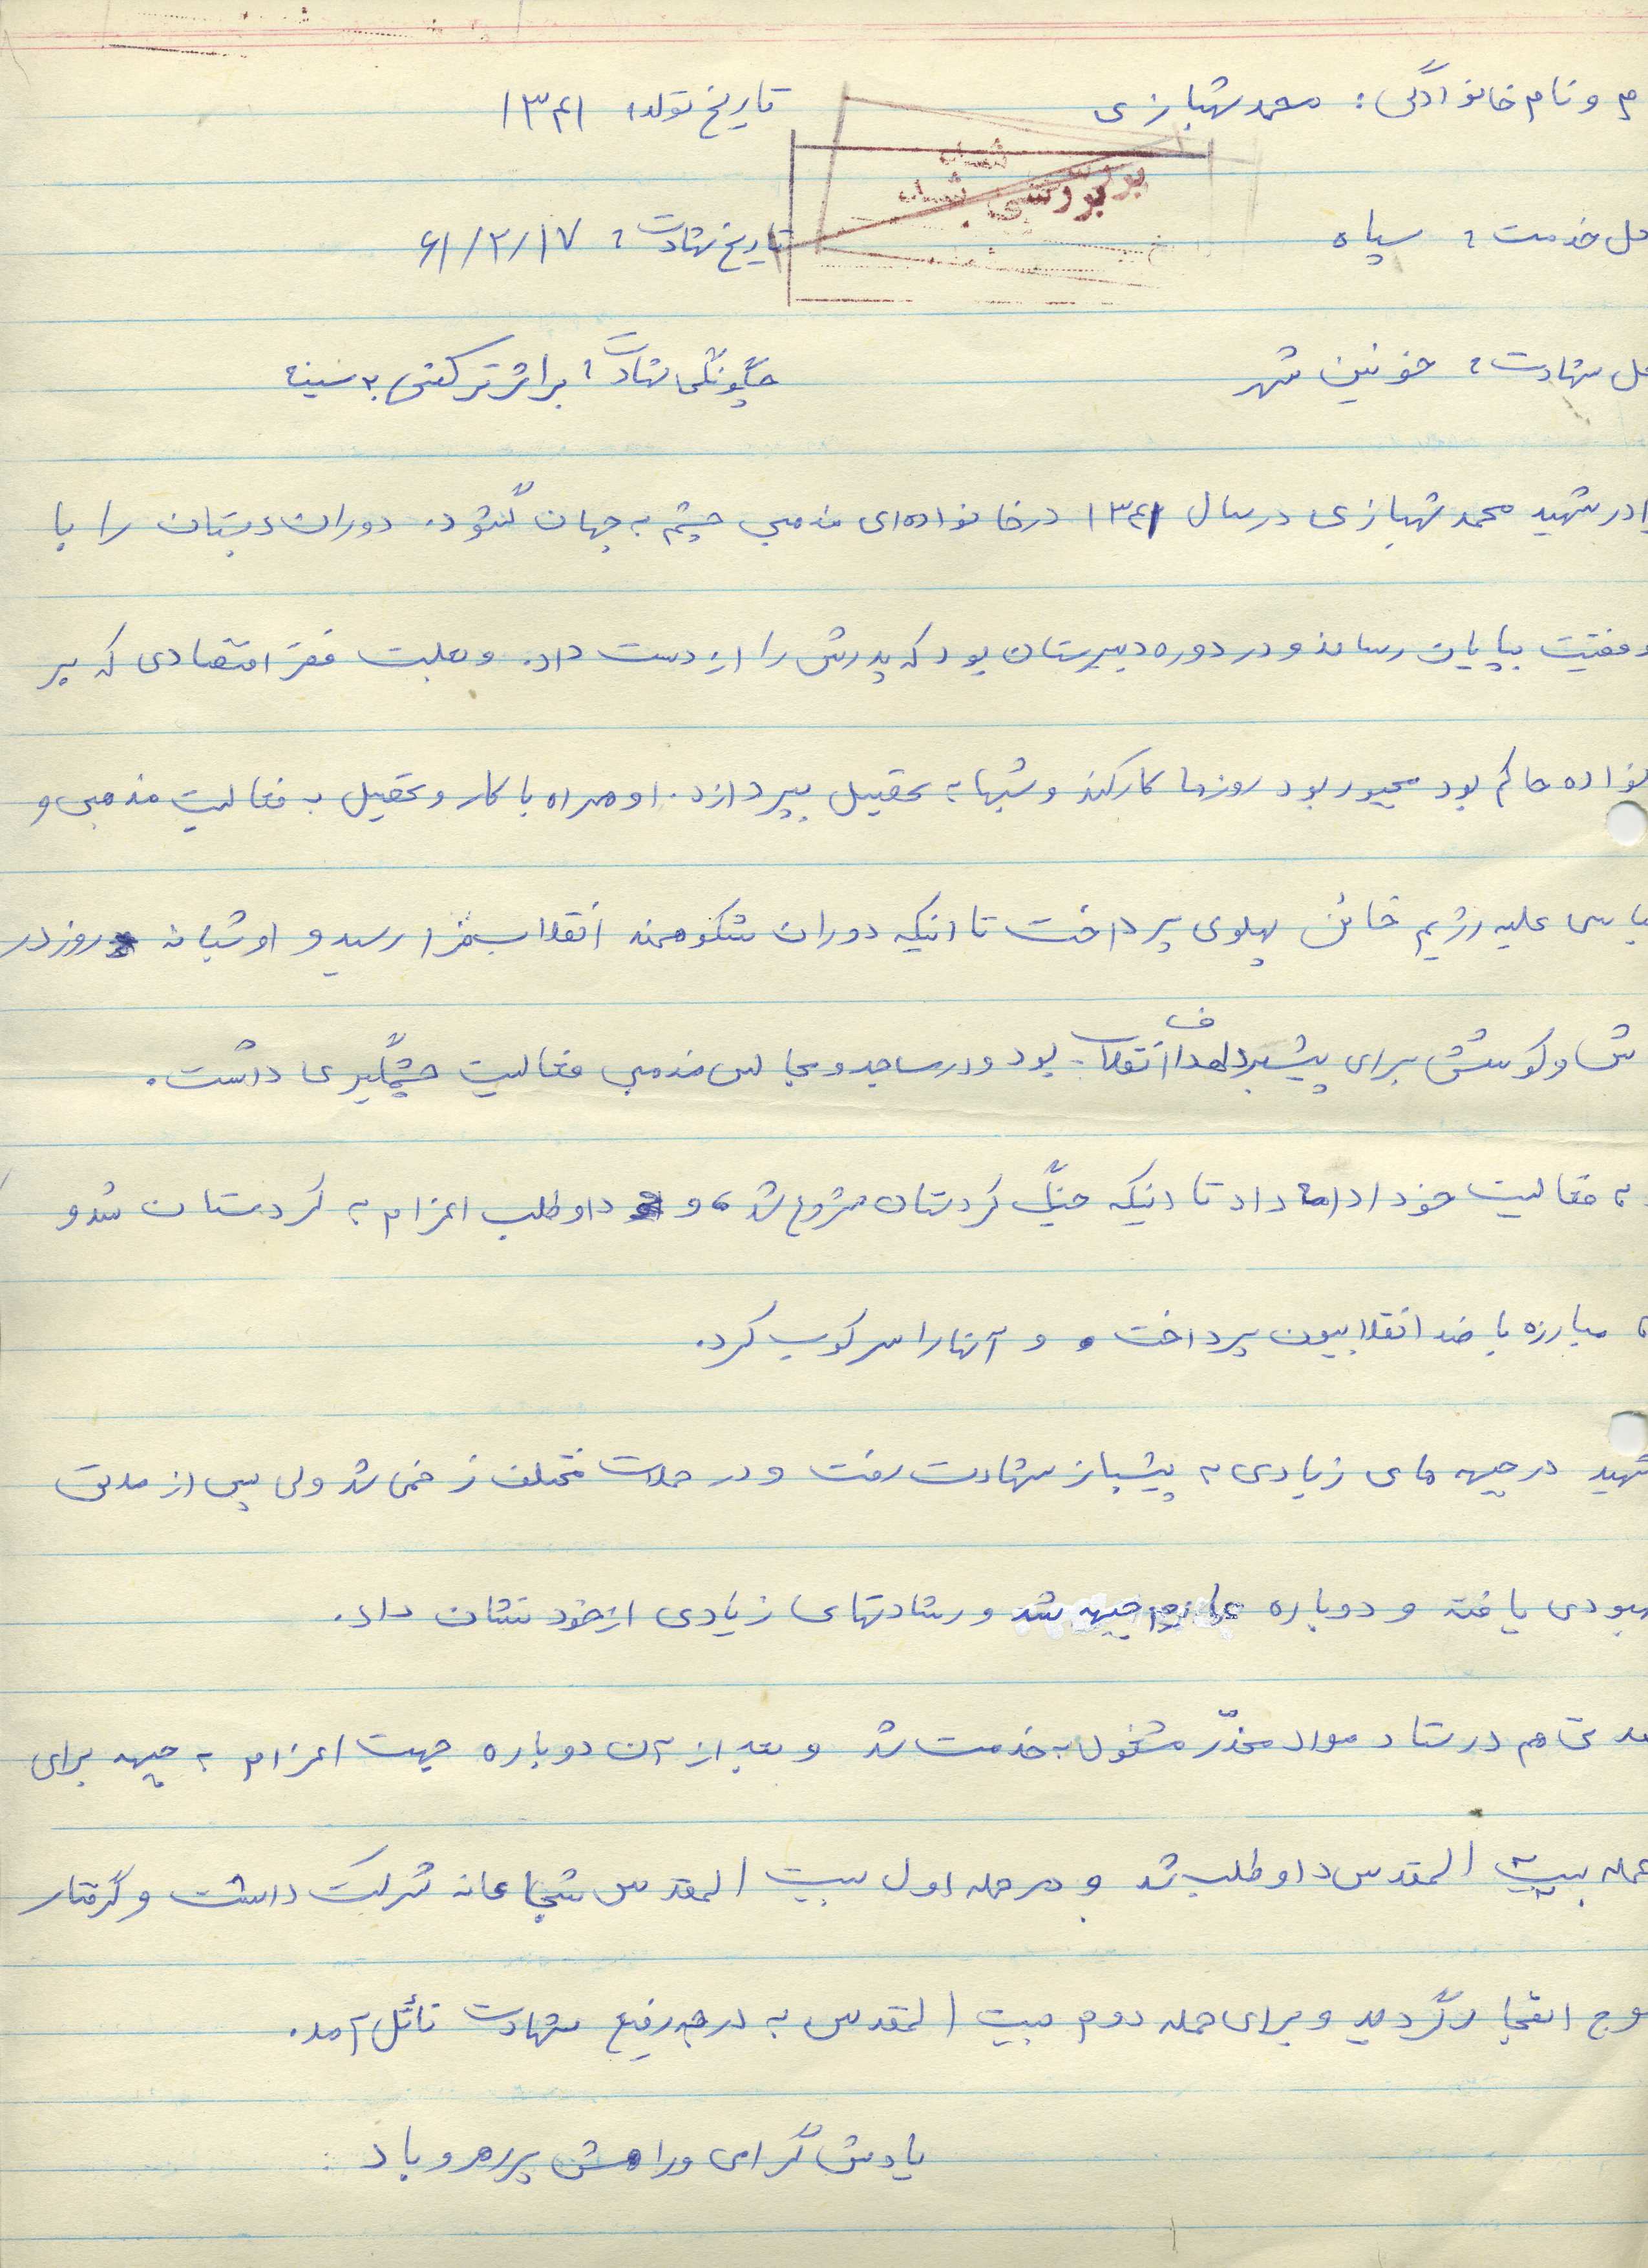 م و نام خانوادگی: محمد شهبازی تاریخ تولد: ۱۳۴۱
بررسی شد
بررسی شد
حل خدمت: سپاه تاریخ شهادت: ۶۱/۲/۱۷
حل شهادت: خونین شهر چگونگی شهادت: براثر ترکش به سینه
رادر شهید محمد شهبازی در سال ۱۳۴۱ در خانواده‌ای مذهبی چشم به جهان گشود. دوران دبستان را با
وفقیت بپایان رساند و در دوره دبیرستان بود که پدرش را از دست داد. و بعلت فقر اقتصادی که بر
نواده حاکم بود مجبور بود روزها کار کند و شبها به تحصیل بپردازد. او همراه با کار و تحصیل به فعالیت مذهبی و
یاسی علیه رژیم خائن پهلوی پرداخت تا اینکه دوران شکوهمند انقلاب فرا رسید و او شبانه روز در
ش و کوشش برای پیشبرد اهداف انقلاب بود و در مساجد و مجالس مذهبی فعالیت چشمگیری داشت.
به فعالیت خود ادامه داد تا اینکه جنگ کردستان شروع شد، و داوطلب اعزام به کردستان شد و
به مبارزه با ضد انقلابیون پرداخت و آنها را سرکوب کرد.
شهید در جبهه های زیادی به پیشباز شهادت رفت و در حملات مختلف زخمی شد ولی پس از مدتی
هبودی یافته و دوباره عازم جبهه شد و رشادتهای زیادی از خود نشان داد.
مدتی هم در ستاد مواد مخدّر مشغول به خدمت شد و بعد از آن دوباره جهت اعزام به جبهه برای
حمله بیت المقدس داوطلب شد و در حمله اول بیت المقدس شجاعانه شرکت داشت و گرفتار
وج انفجار گردید و برای حمله دوم بیت المقدس به درجه رفیع شهادت نائل آمد.
یادش گرامی و راهش پررهرو باد